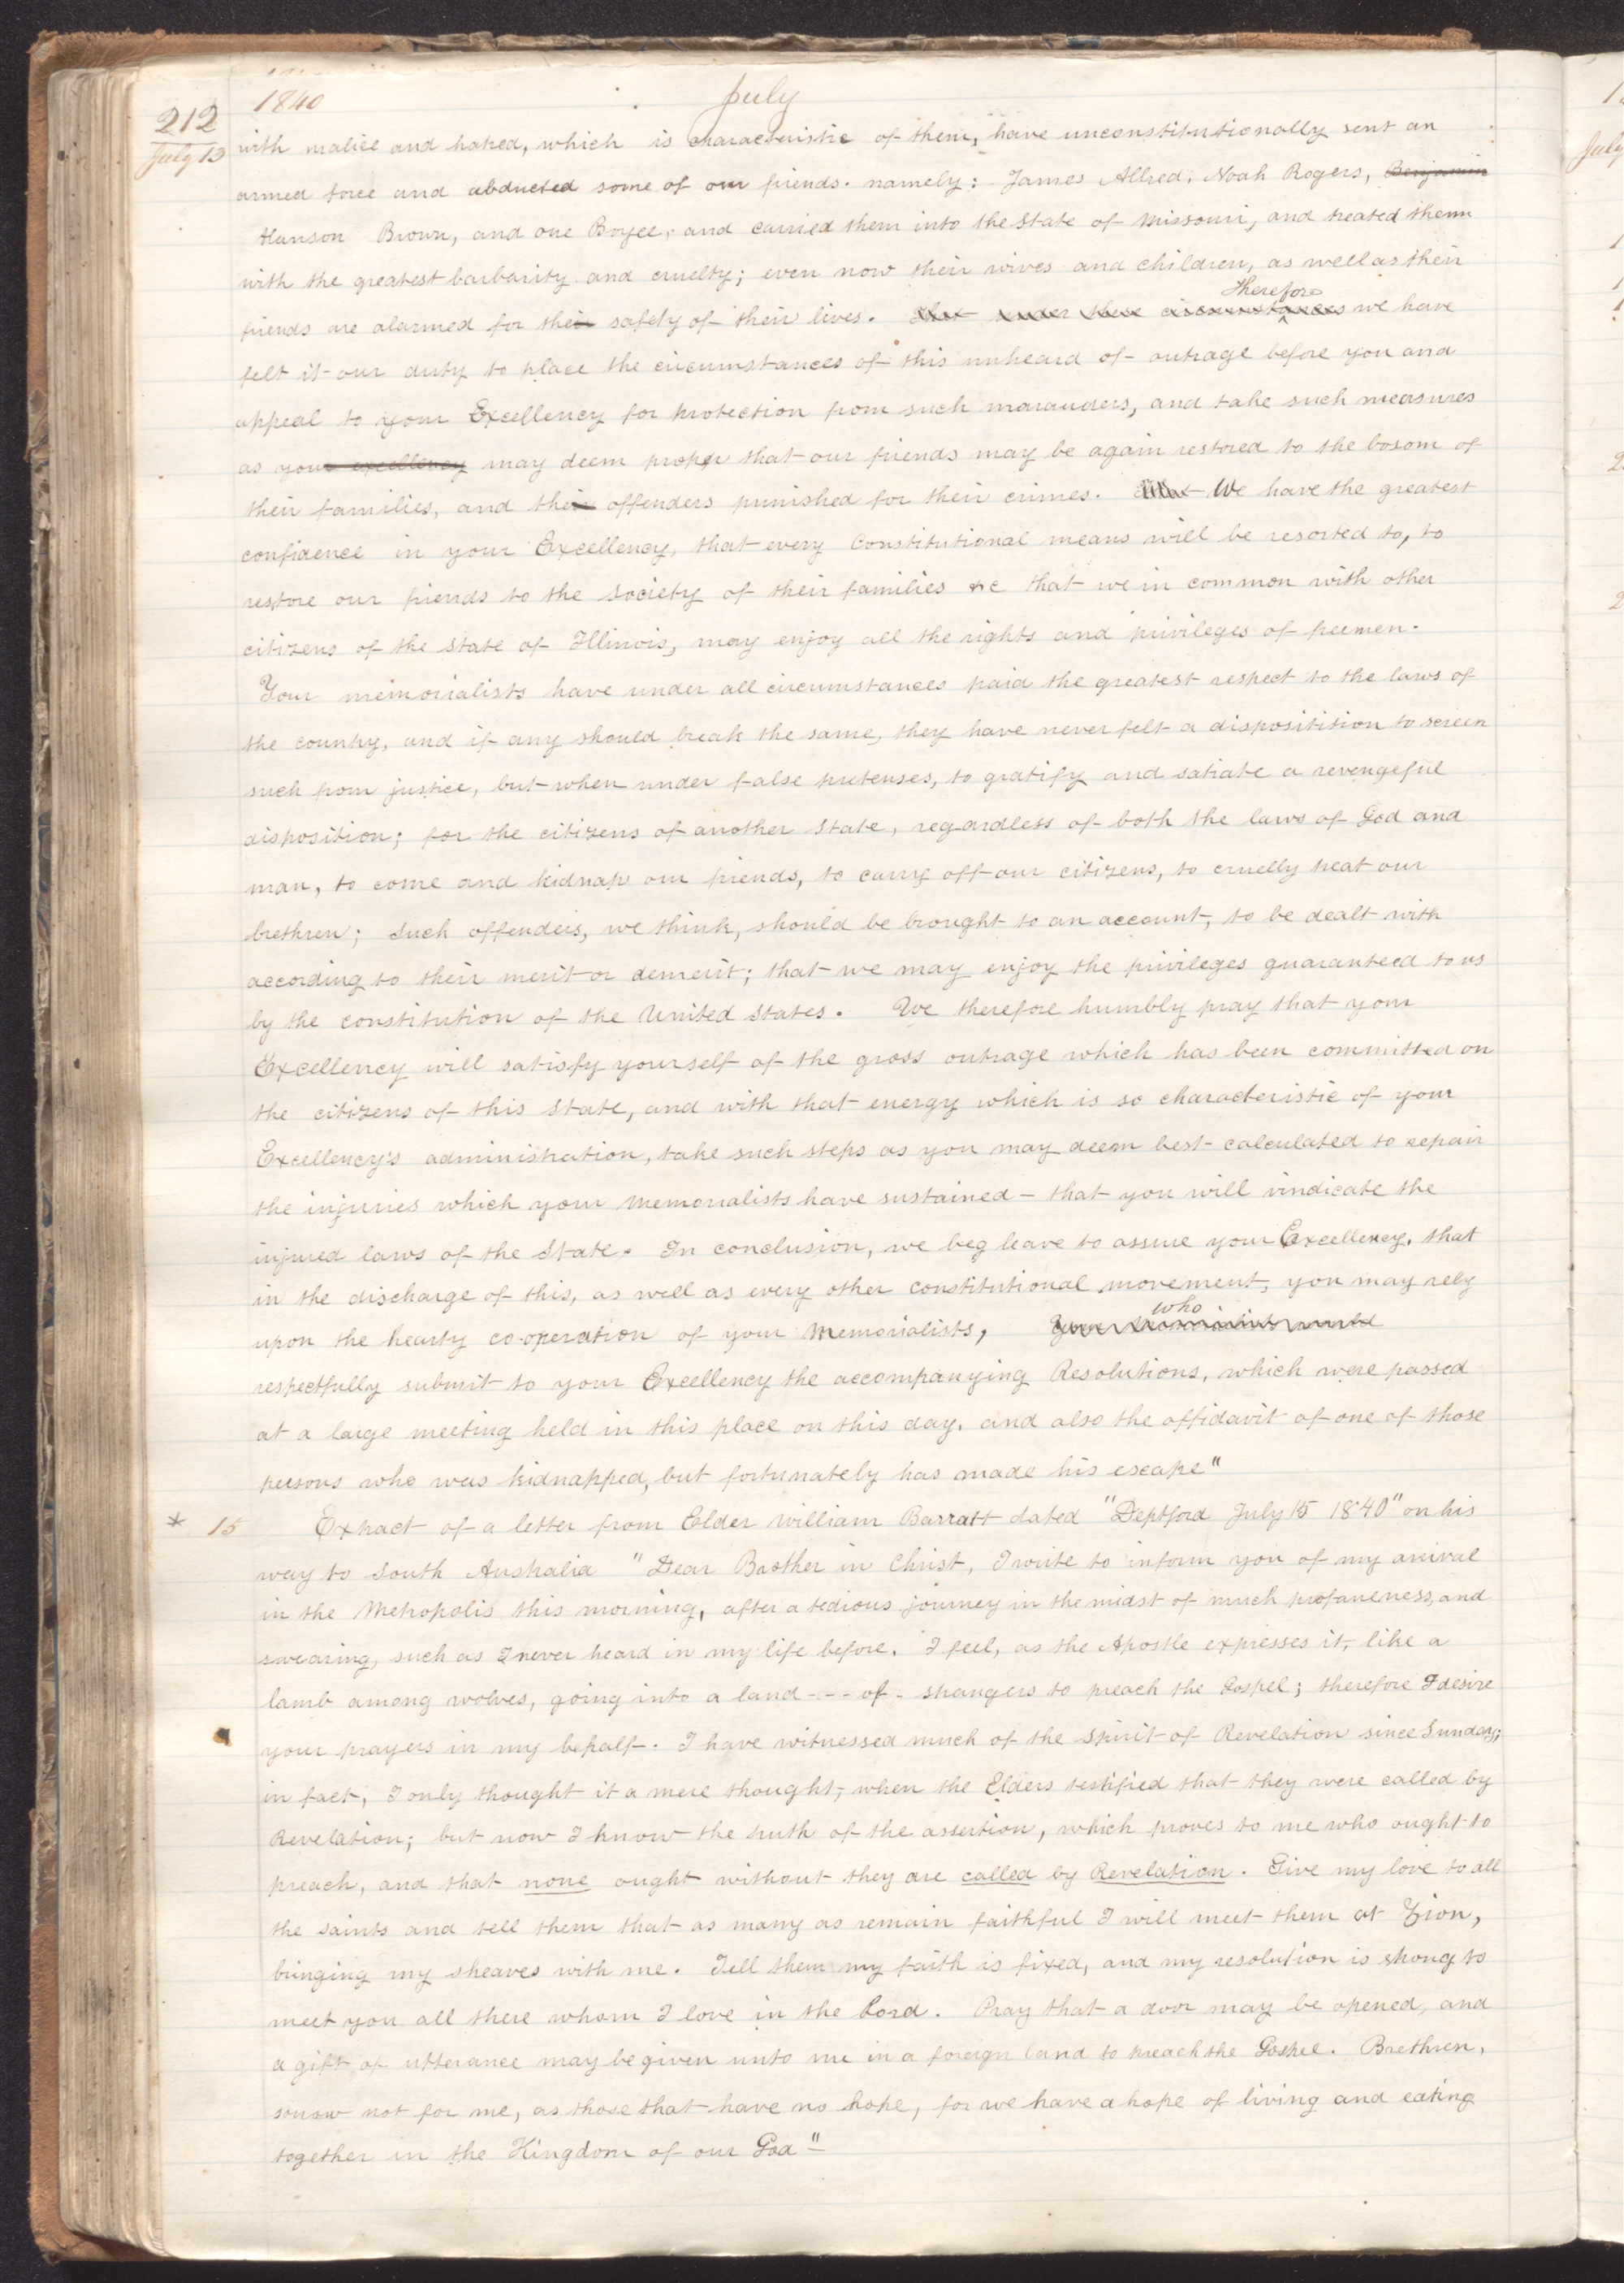 212
1840
July
July 13
with malice and hatred, which is characteristic of them, have unconstitutionally sent an
armed force and abducted some of our friends. namely: James Allred, Noah Rogers, Benjamin
Hanson Brown, and one Boyce, and carried them into the State of Missouri, and treated them
with the greatest barbarity and cruelty; even now their wives and children, as well as their
therefore
friends are alarmed for their safety of their lives. that under these circumstances we have
felt it our duty to place the circumstances of this unheard of outrage before you and
appeal to your Excellency for protection from such marauders, and take such measures
as your excellency may deem proper that our friends may be again restored to the bosom of
their families, and their offenders punished for their crimes. We have the greatest
confidence in your Excellency, that every Constitutional means will be resorted to, to
restore our friends to the society of their families &c that we in common with other
citizens of the State of Illinois, may enjoy all the rights and privileges of freemen.
Your memorialists have under all circumstances paid the greatest respect to the laws of
the country, and if any should break the same, they have never felt a dispositition to screen
such from justice, but when under false pretenses, to gratify and satiate a revengeful
disposition; for the citizens of another State, regardless of both the laws of God and
man, to come and kidnap our friends, to carry off our citizens, to cruelly treat our
brethren; such offenders, we think, should be brought to an account, to be dealt with
according to their merit or demerit; that we may enjoy the privileges guaranteed to us
by the constitution of the United States. We therefore humbly pray that your
Excellency will satisfy yourself of the gross outrage which has been committed on
the citizens of this State, and with that energy which is so characteristic of your
Excellency's administration, take such steps as you may deem best calculated to repair
the injuries which your memorialists have sustained - that you will vindicate the
injured laws of the State. In conclusion, we beg leave to assure your Excellency, that
in the discharge of this, as well as every other constitutional movement, you may rely
who
upon the hearty co-operation of your Memorialists, Your Memorialists would
respectfully submit to your Excellency the accompanying Resolutions, which were passed
at a large meeting held in this place on this day. and also the affidavit of one of those
persons who was kidnapped, but fortunately has made his escape"
* 15 Extract of a letter from Elder William Barratt dated "Deptford July 15 1840" on his
way to South Australia "Dear Brother in Christ, I write to inform you of my arrival
in the Metropolis this morning, after a tedious journey in the midst of much profaneness, and
swearing, such as I never heard in my life before. I feel, as the Apostle expresses it, like a
lamb among wolves, going into a land --- of - strangers to preach the Gospel; therefore I desire
your prayers in my behalf. I have witnessed much of the spirit of Revelation since Sunday;
in fact, I only thought it a mere thought, when the Elders testified that they were called by
Revelation; but now I know the truth of the assertion, which proves to me who ought to
preach, and that none ought without they are called by Revelation. Give my love to all
the saints and tell them that as many as remain faithful I will meet them at Zion,
bringing my sheaves with me. Tell them my faith is fixed, and my resolution is strong to
meet you all there whom I love in the Lord. Pray that a door may be opened, and
a gift of utterance may be given unto me in a foreign land to preach the Gospel. Brethren,
sorrow not for me, as those that have no hope, for we have a hope of living and eating
together in the Kingdom of our God"
July